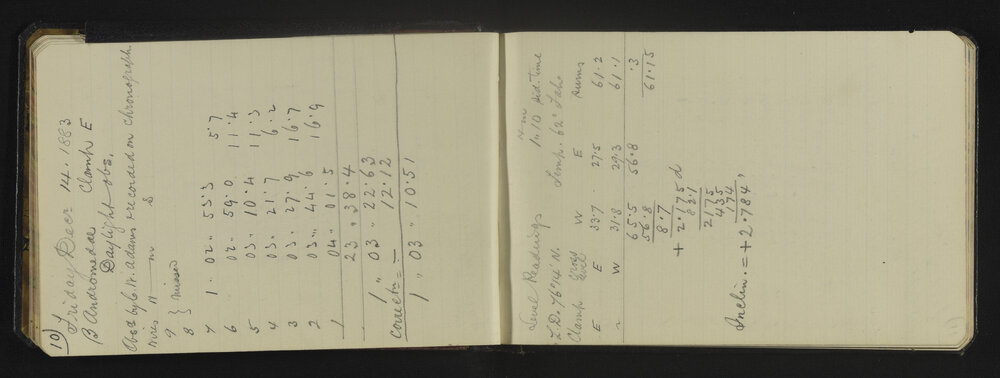 10)
Friday Decr 14. 1883
B Andromedae Clamp E
Daylight obs.
Obsd by C W. Adams & recorded on chronograph
Wires H m S
9 } missed
8
7 1. 02.. 53.3 5.7
6 02.. 59.0 11.4
5 03.. 10.4 11.3
4 03. 21.7 6.2
3 03. 27.9 16.7
2 03.. 44.6 16.9
1 04.. 01.5
23 " 38.4
1 " 03 " 22.63
Correctn = - 12.12
1 " 03 " 10.51
Level Readings 1h 10m Sid. time
Z.D. 76°14' N. Temp. 62° Fahr
Clamp W E Sums
E E 33.7 27.5 61.2
W 31.8 29.3 61.1
65.5 56.8 .3
56.8 61.15
8.7
+ 2.175 d
2175
435
174
Inclin. = + 2.784 "